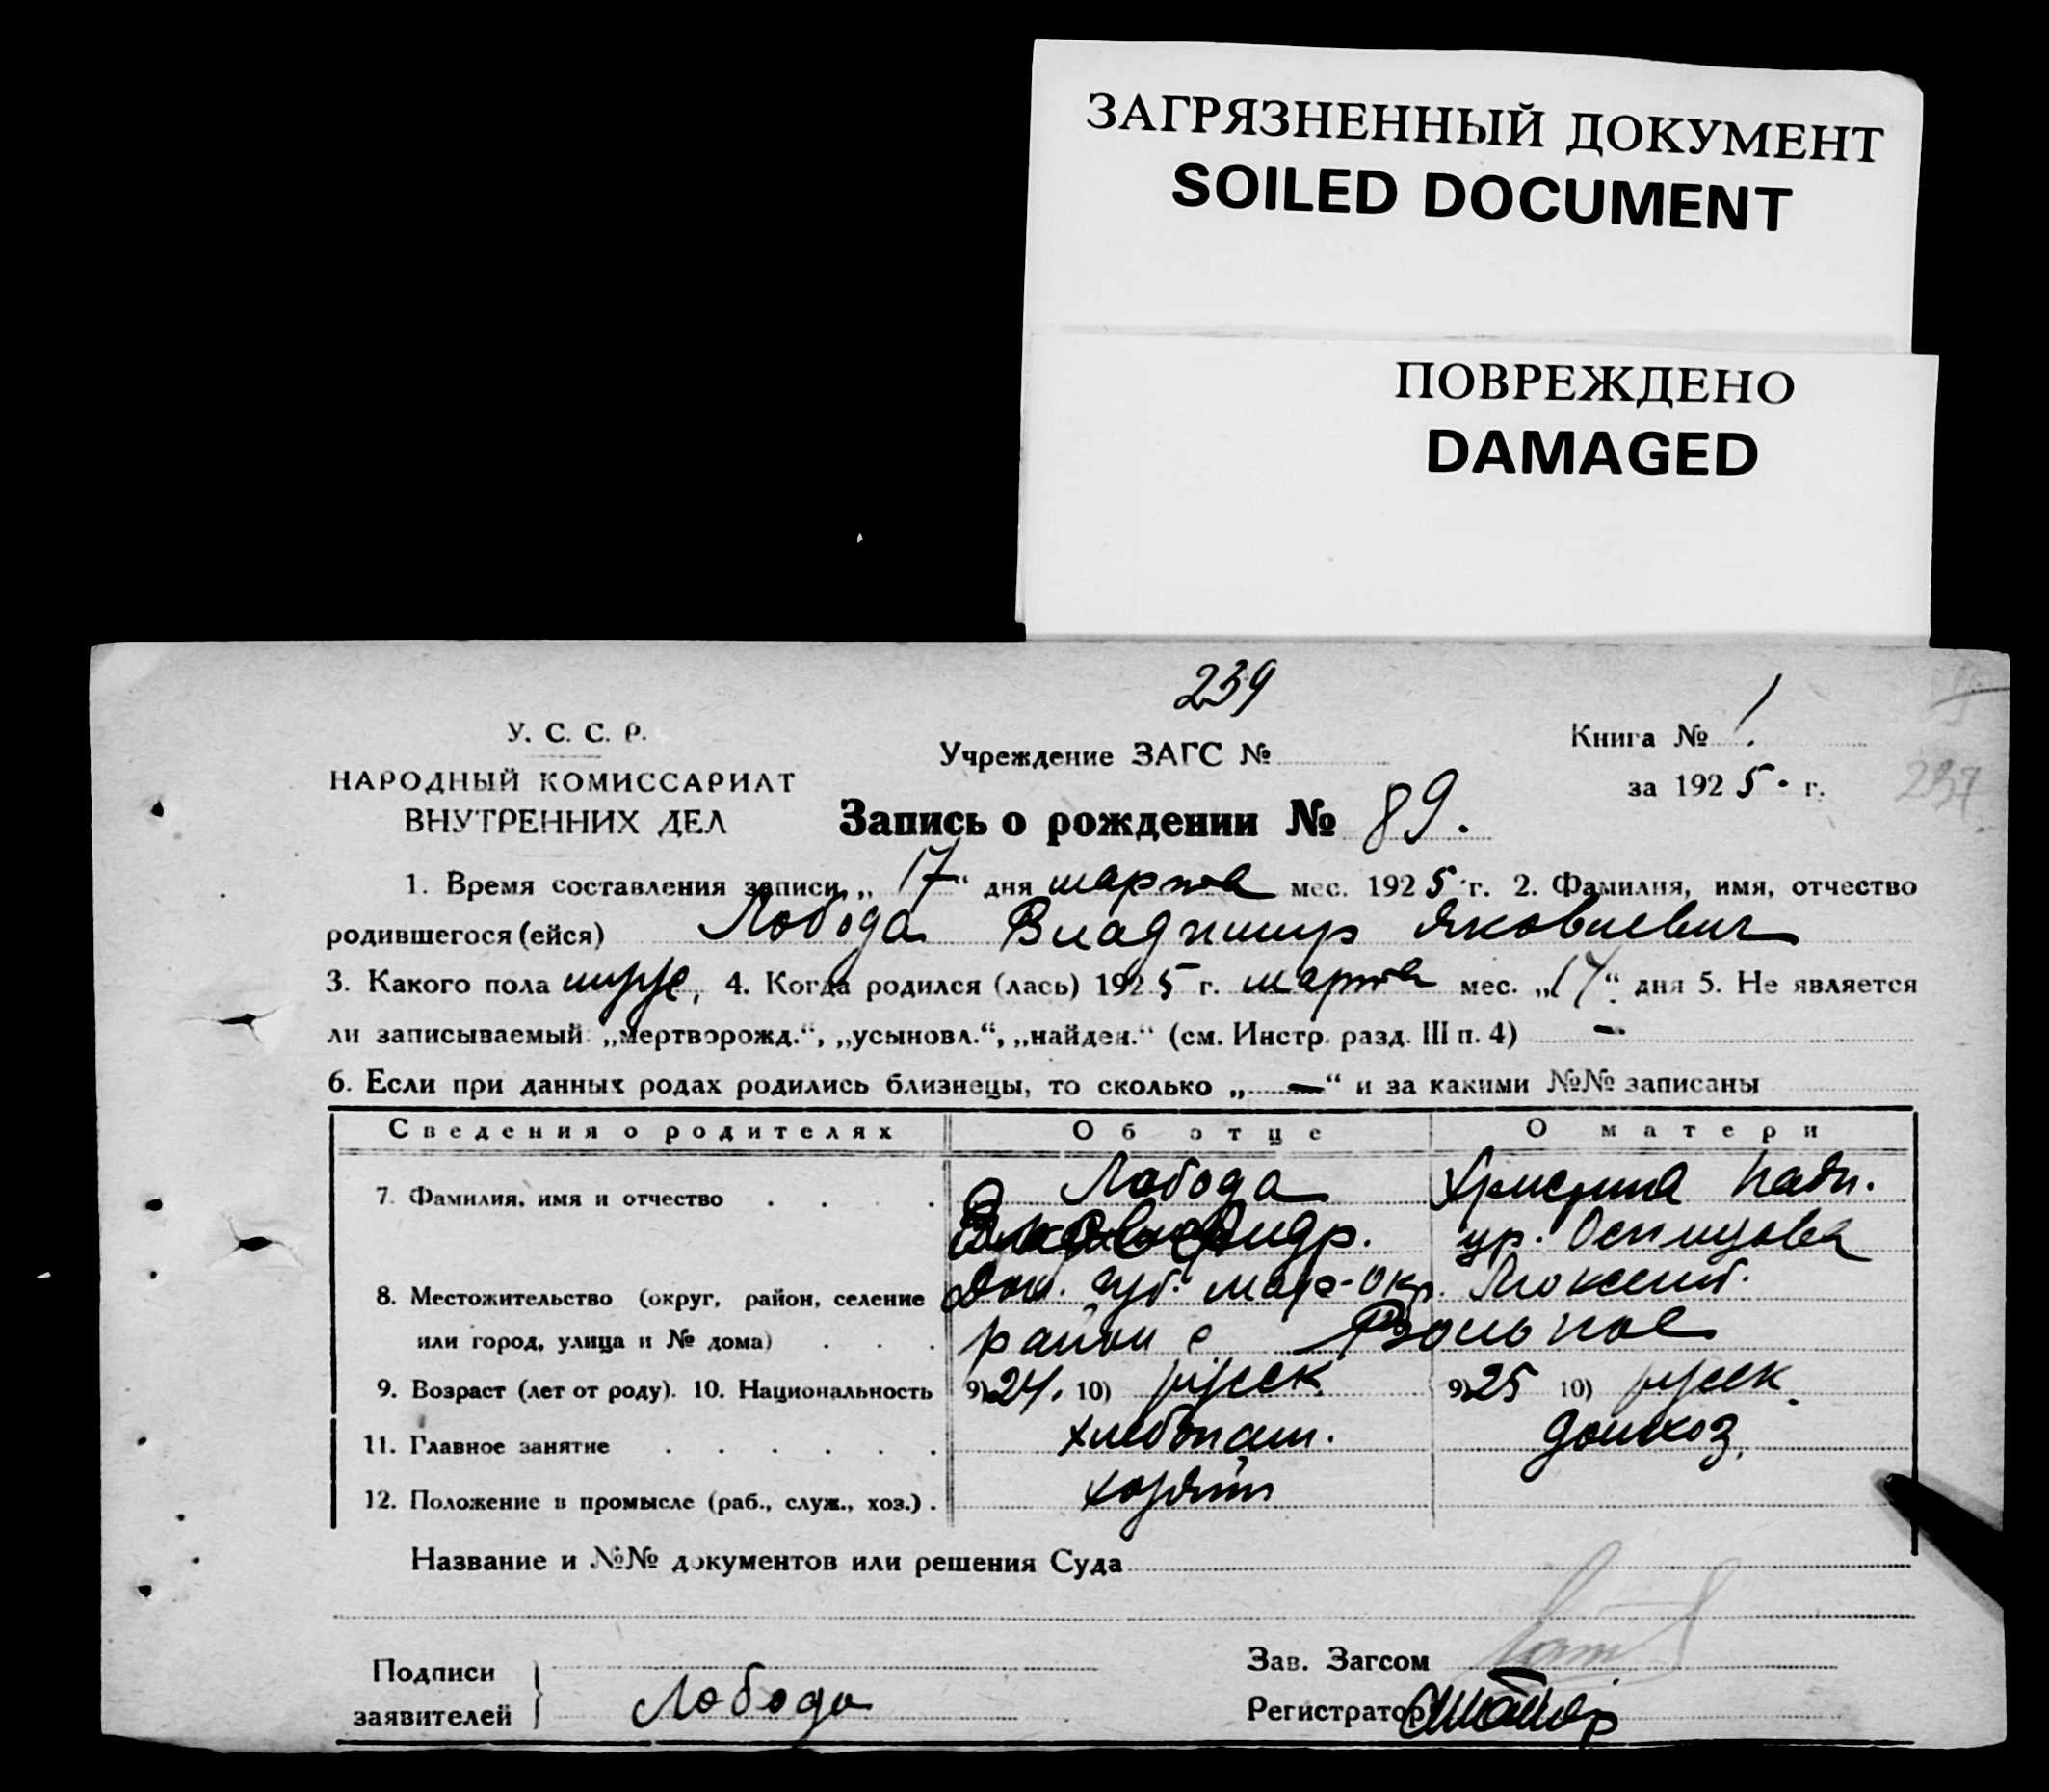 ЗАГРЯЗНЕННЫЙ ДОКУМЕНТ
SOILED DOCUMENT
ПОВРЕЖДЕНО
DAMAGED
239
У. С. С. Р.
НАРОДНЫЙ КОМИССАРИАТ
ВНУТРЕННИХ ДЕЛ
Учреждение ЗАГС №
Книга № 1
за 1925 г.
237
Запись о рождении № 89.
1. Время составления записи „17“ дня марта мес. 1925 г. 2. Фамилия, имя, отчество
родившегося (ейся) Лобода Владимир Яковлевич
3. Какого пола муж, 4. Когда родился (лась) 1925 г. марта мес. „14“ дня 5. Не является
ли записываемый: „мертворожд.“, „усыновл.“, „найден.“ (см. Инстр. разд. III п. 4) –
6. Если при данных родах родились близнецы, то сколько „—“ и за какими №№ записаны
Сведения о родителях Об отце О матери
7. Фамилия, имя и отчество Лобода Христина
Андр. ур. Осипцова
8. Местожительство (округ, район, селение Дон. губ. Мар-окр.
или город, улица и № дома) район с Вольное
9. Возраст (лет от роду). 10. Национальность 9) 24. 10) русск 9) 25 10) русск.
11. Главное занятие хлебопаш. домхоз.
12. Положение в промысле (раб., служ., хоз.) хозяин
Название и №№ документов или решения Суда
Подписи
заявителей Лобода
Зав. Загсом
Регистратор